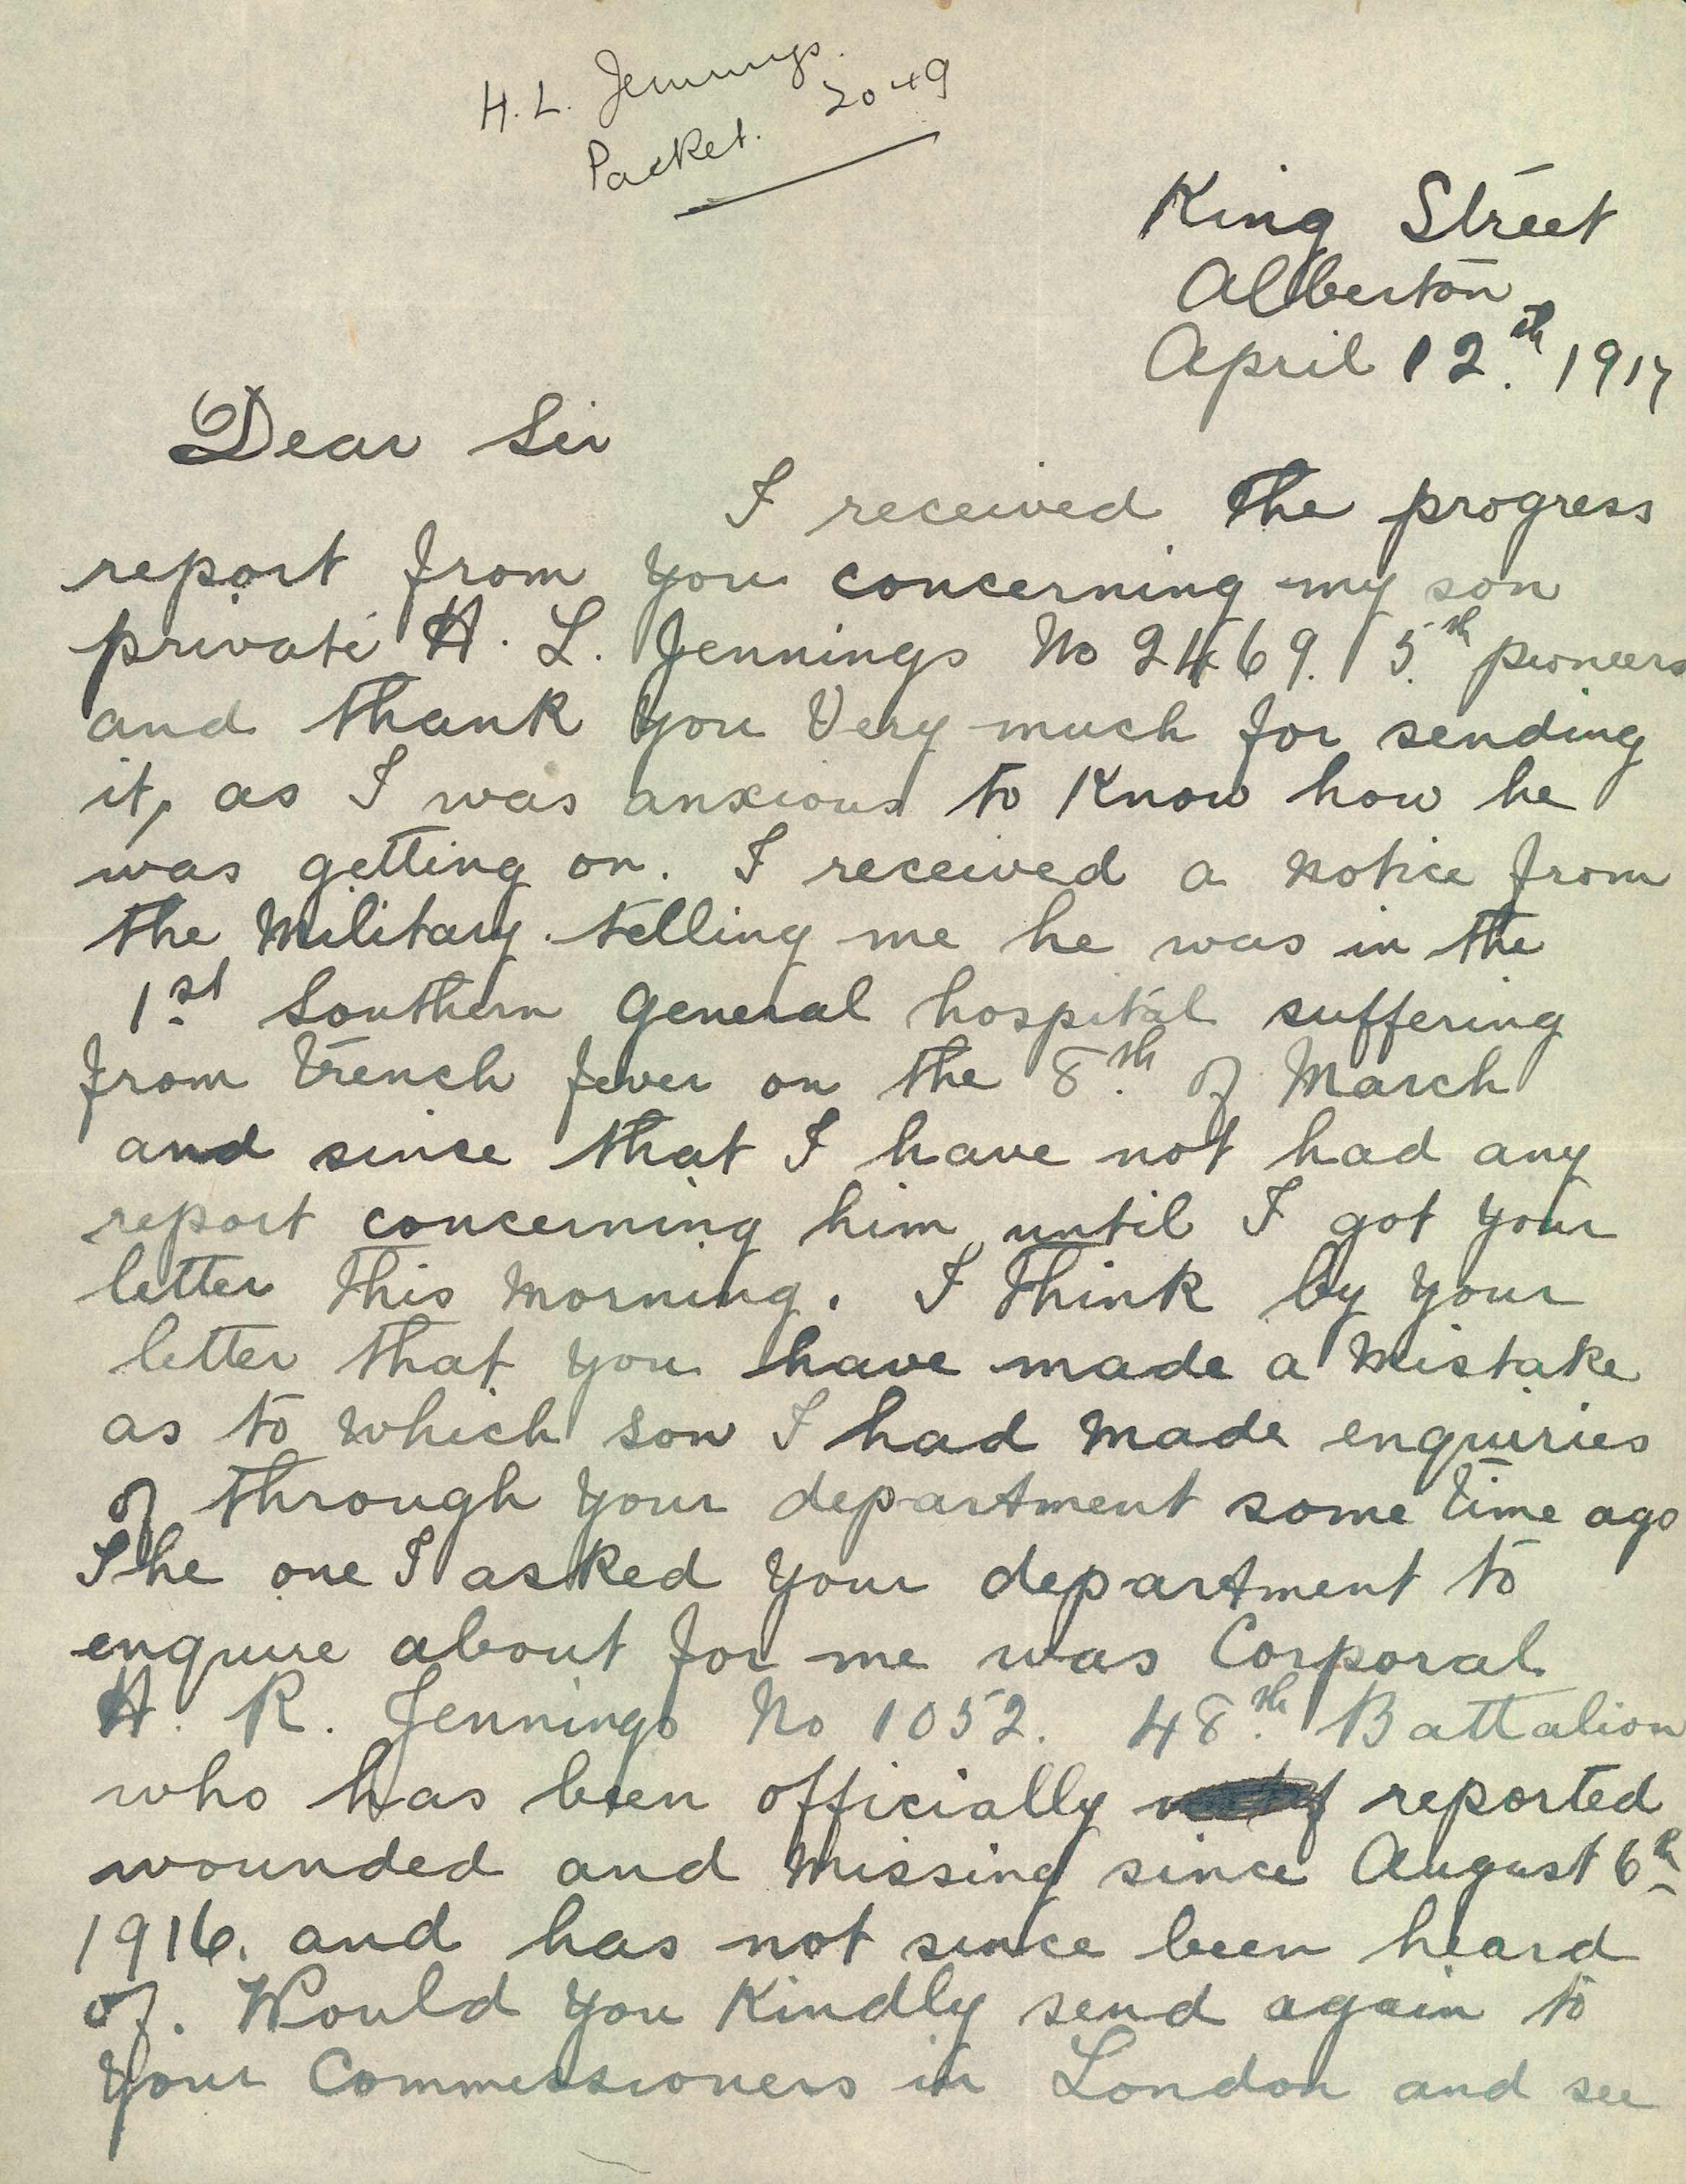 H. L. Jennings.
Packet. 2049
King Street
Alberton
April 12.th 1917
Dear Sir
I received the progress
report from you concerning my son
private H. L. Jennings No 2469. 5.th pioneers
and thank you Very much for sending
it, as I was anxious to Know how he
was getting on. I received a notice from
the Military. telling me he was in the
1st Southern General hospital suffering
from trench fever on the 8.th of March
and since that I have not had any
report concerning him, until I got your
letter this morning. I think by your
letter that you have made a Mistake
as to which son I had made enquiries
of through your department some time ago
The one I asked your department to
enquire about for me was Corporal
H. R. Jennings No 1052. 48.th Battalion
who has been officially reported
wounded and Missing since August 6th
1916. and has not since been heard
of. Would you Kindly send again to
your Commissioners in London and see